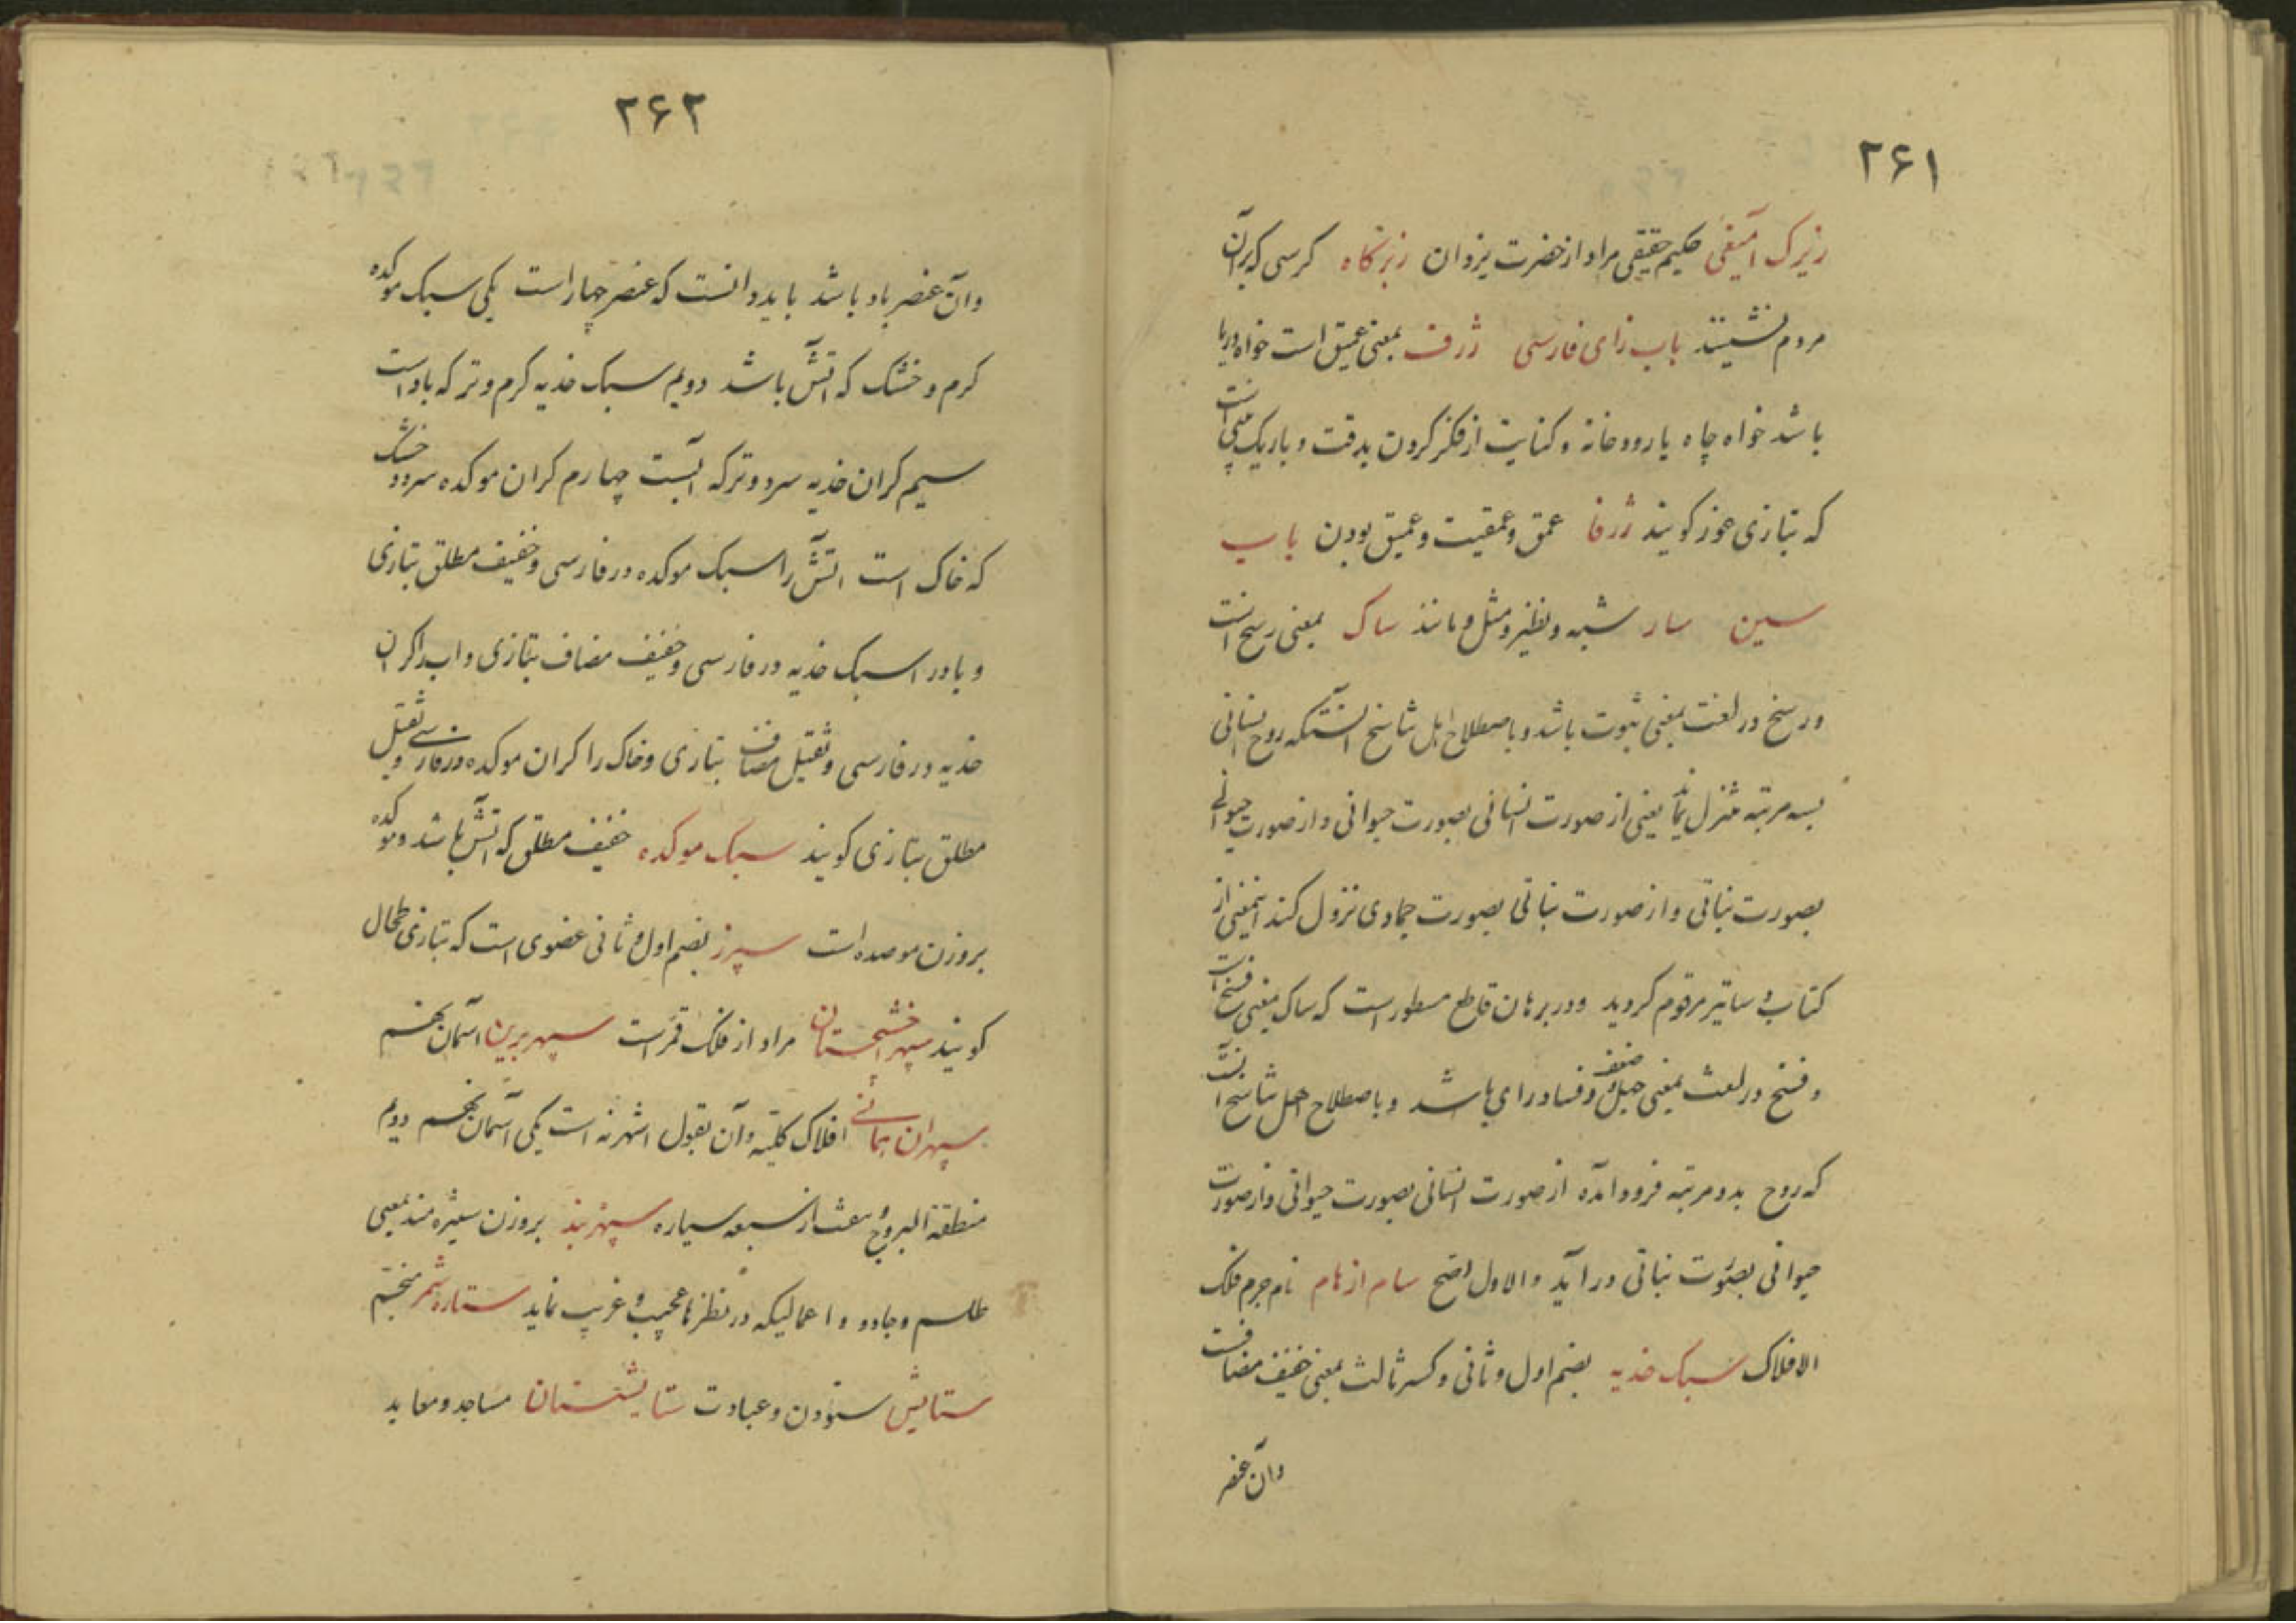 ۲۶۱
زیرک آمیغی حکیم حقیقی مراد از حضرت یزدان زبرگاه کرسی که بر آن
مردم نشینند باب زای فارسی ژرف بمعنی عمیق است خواه دریا
باشد خواه چاه یا رودخانه و کنایت از فکر کردن بدقت و باریک بینی است
که بتازی غور کویند ژرفا عمق و عمقیت و عمیق بودن باب
سین سار شبه و نظیر و مثل و مانند ساک بمعنی رسخ است
و رسخ در لغت بمعنی ثبوت باشد و باصطلاح اهل تناسخ آنستکه روح انسانی
بسه مرتبه تنزل نماید یعنی از صورت انسانی بصورت حیوانی و از صورت حیوانی
بصورت نباتی و از صورت نباتی بصورت جمادی نزول کند اینمعنی از
کتاب دساتیر مرقوم کردید و در برهان قاطع مسطور است که ساک بمعنی فسخ است
و فسخ در لغت بمعنی جهل و ضعف و فساد رای باشد و باصطلاح اهل تناسخ آنست
که روح بدو مرتبه فرود آمده از صورت انسانی بصورت حیوانی و از صورت
حیوانی بصورت نباتی در آید والاول اصح سام ازهام نام جرم فلک
الافلاک سبک خدیه بضم اول و ثانی و کسر ثالث بمعنی خفیف مضافست
وان عنصر
۲۶۲
وآن عنصر باد باشد باید دانست که عنصر چهار است یکی سبک موکده
کرم و خشک که آتش باشد دویم سبک خدیه کرم و تر که باد است
سیم کران خدیه سرد و تر که آبست چهارم کران موکده سرد و خشک
که خاک است آتش را سبک موکده در فارسی و خفیف مطلق بتازی
و باد را سبک خدیه در فارسی و خفیف مضاف بتازی و اب را کران
خدیه در فارسی و ثقیل مضاف بتازی و خاک را کران موکده در فارسی و ثقیل
مطلق بتازی کویند سبک موکده خفیف مطلق که آتش باشد و موکده
بروزن موصده است سپرز بضم اول و ثانی عضوی است که بتازی طحال
کویند سپهر اخشیجستان مراد از فلک قمر است سپهر برین آسمان نهم
سپهران همانی افلاک کلیه و آن بقول اشهر نه است یکی آسمان نهم دویم
منطقة البروج و هفت از سبعه سیاره سپهر بند بروزن ستیزه مند بمعنی
طلسم و جادو و اعمالیکه در نظرها عجیب و غریب نماید ستاره شمر منجم
ستایش ستودن و عبادت ستایشستان مساجد و معابد